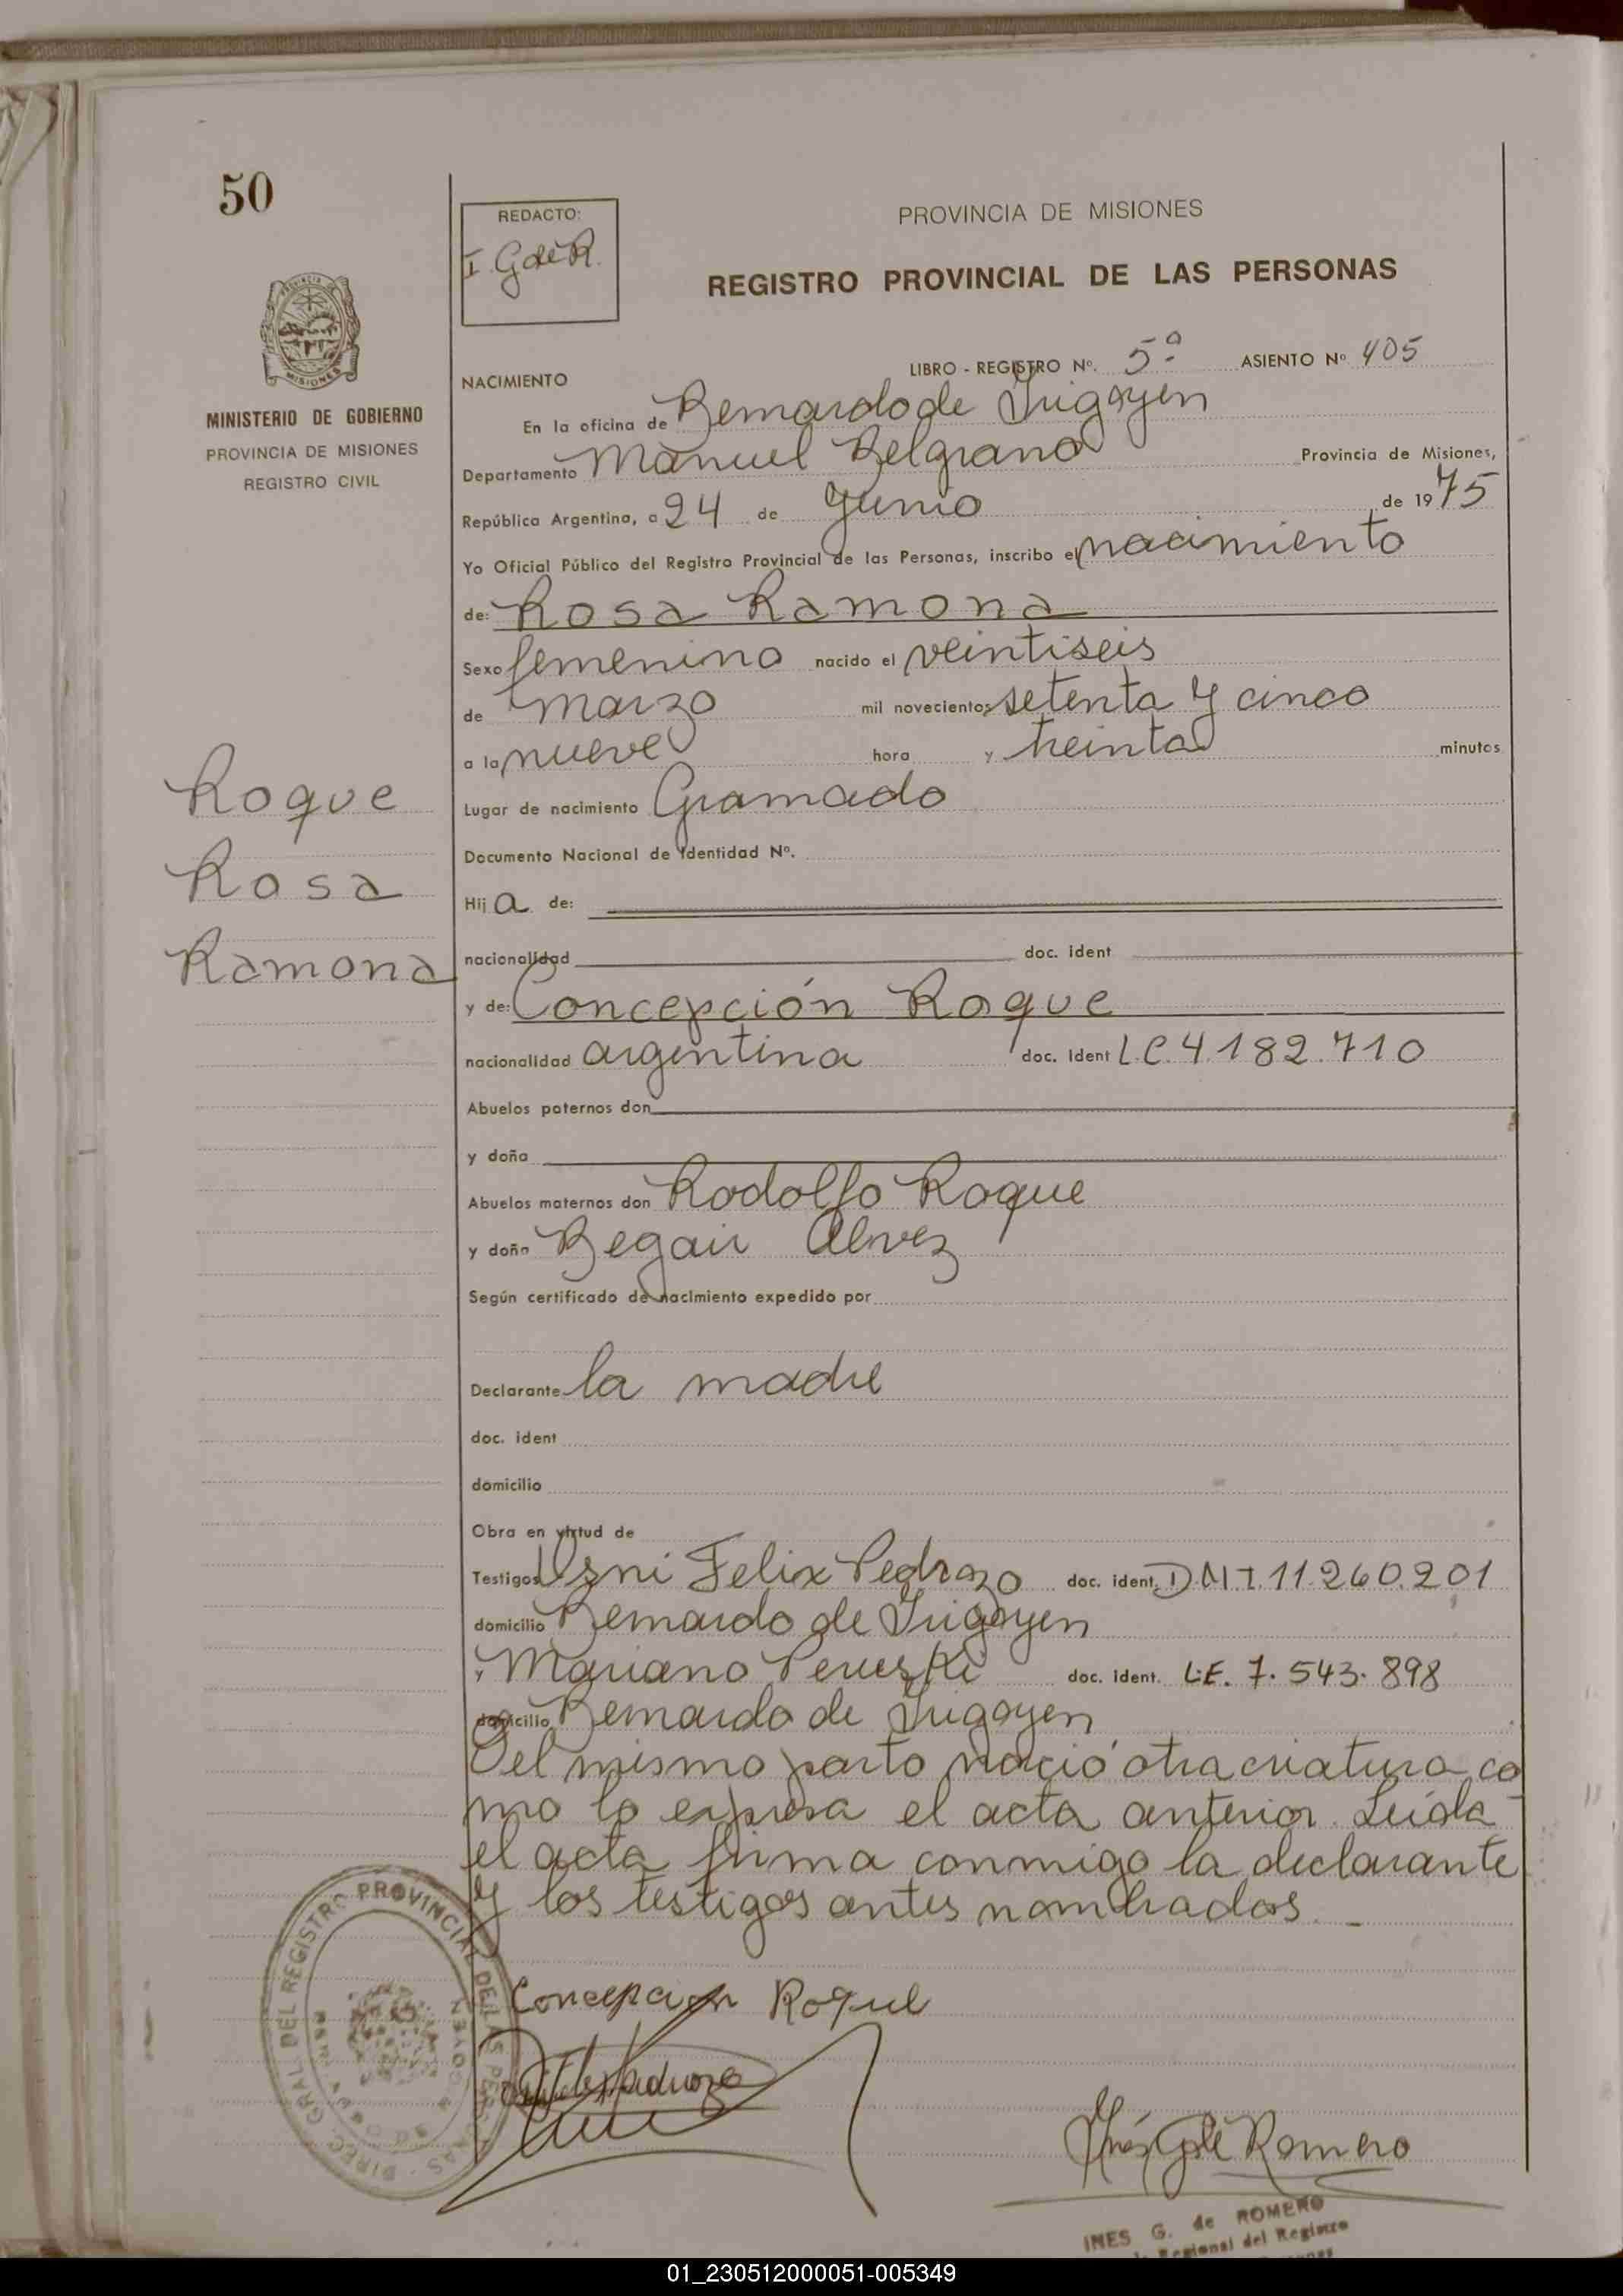 50
REDACTO:
I. G de R.
PROVINCIA DE MISIONES
REGISTRO PROVINCIAL DE LAS PERSONAS
MINISTERIO DE GOBIERNO
PROVINCIA DE MISIONES
REGISTRO CIVIL
LIBRO - REGISTRO Nº. 5º ASIENTO Nº 405
NACIMIENTO
En la oficina de Bernardo de Irigoyen
Departamento Manuel Belgrano Provincia de Misiones,
República Argentina, a 24 de Junio de 1975
Yo Oficial Público del Registro Provincial de las Personas, inscribo el nacimiento
de: Rosa Ramona
Sexo femenino nacido el veintiseis
de marzo mil novecientos setenta y cinco
a la nueve hora y treinta minutos
Roque
Rosa
Ramona
Lugar de nacimiento Gramado
Documento Nacional de Identidad Nº.
Hija de:
nacionalidad doc. ident
y de: Concepción Roque
nacionalidad argentina doc. ident L.C. 4.182.710
Abuelos paternos don
y doña
Abuelos maternos don Rodolfo Roque
y doña Begair Alvez
Según certificado de nacimiento expedido por
Declarante la madre
doc. ident
domicilio
Obra en virtud de
Testigos Osni Felix Pedrozo doc. ident. DNI. 11.260.201
domicilio Bernardo de Irigoyen
y Mariano Peruski doc. ident. L.E. 7.543.898
domicilio Bernardo de Irigoyen
Del mismo parto nació otra criatura co
mo lo expresa el acta anterior. Leida
el acta firma conmigo la declarante
y los testigos antes nombrados. _
Concepcion Roque
Inés G de Romero
INES G. de ROMERO
Regional del Registro
DIREC. GRAL DEL REGISTRO PROVINCIAL DE LAS PERSONAS
01_230512000051-005349